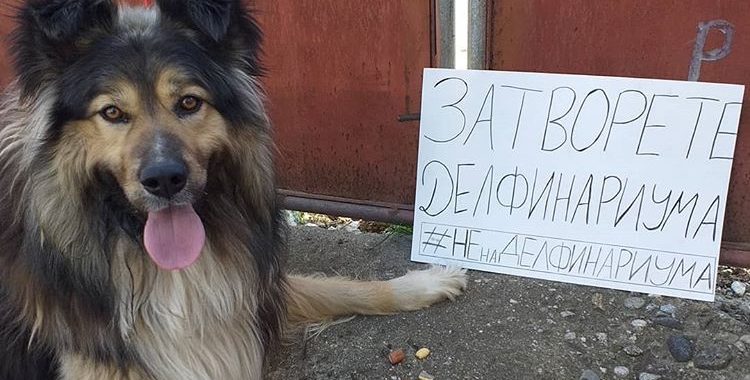 P
ЗАТВОРЕТЕ
ДЕЛФИНАРИУМА
#НЕнаДЕЛФИНАРИУМА